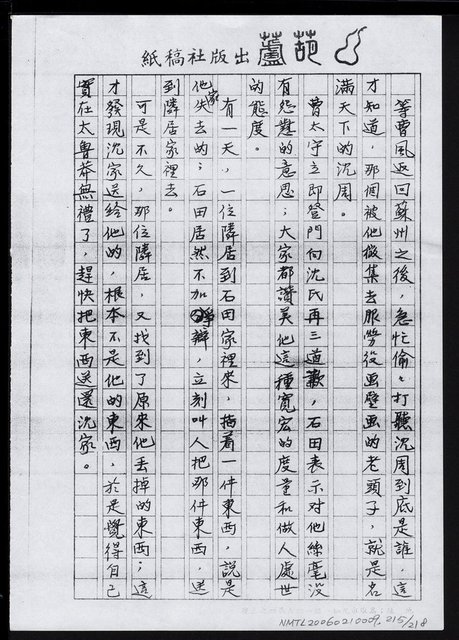 葫蘆出版社稿紙
等曹風返回蘇州之後，急忙偷々打聽沈周到底是誰，這
才知道，那個被他徵集去服勞役画壁画的老頭子，就是名
滿天下的沈周。
曹太守立即登門向沈氏再三道歉，石田表示對他絲毫沒
有怨懟的意思；大家都讚美他這種寬宏的度量和做人處世
的態度。
有一天，一位隣居到石田家裡來，指着一件東西，說是
他家失去的；石田居然不加爭辯，立刻叫人把那件東西，送
到隣居家裡去。
可是不久，那位隣居，又找到了原來他丟掉的東西；這
才發現沈家送給他的，根本不是他的東西，於是覺得自己
實在太魯莽無禮了，趕快把東西送還沈家。
NMTL20060210009. 215/218